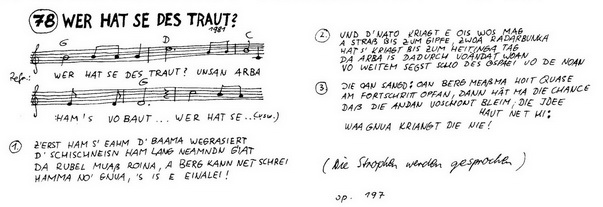 78 WER HAT SE DES TRAUT?
1981
G D C
Refr.:
WER HAT SE DES TRAUT? UNSAN ARBA
G
'HAM'S VOBAUT... WER HAT SE.. (usw.)
1. Z'ERST HAM S' EAHM D' BAAMA WEGRASIERT
D' SCHISCHNEISN HAM LANG NEAMNDN GIAT
DA RUBEL MUAß ROINA, A BERG KANN NET SCHREI
HAMMA NO' GNUA, 'S IS E EINALEI!
2. UND D'NATO KRIAGT E OIS WOS MAG
A STRAß BIS ZUM GIPFE, ZWOA RADARBUNKA
HAT S' KRIAGT BIS ZUM HEITINGA TAG
DA ARBA IS DADURCH VOANDAT WOAN
VO WEITEM SEGST SCHO DES VO DE NOAN
3. DIE OAN SANGD: OAN BERG MEAßMA HOIT QUASE
AM FORTSCHRITT OPFAN, DANN HÄT MA DIE CHANCE
DAß DIE ANDAN VOSCHONT BLEIM, DIE IDEE
HAUT NET HI:
WAA GNUA KRIANGT DIE NIE!
(Die Strophen werden gesprochen)
op. 197